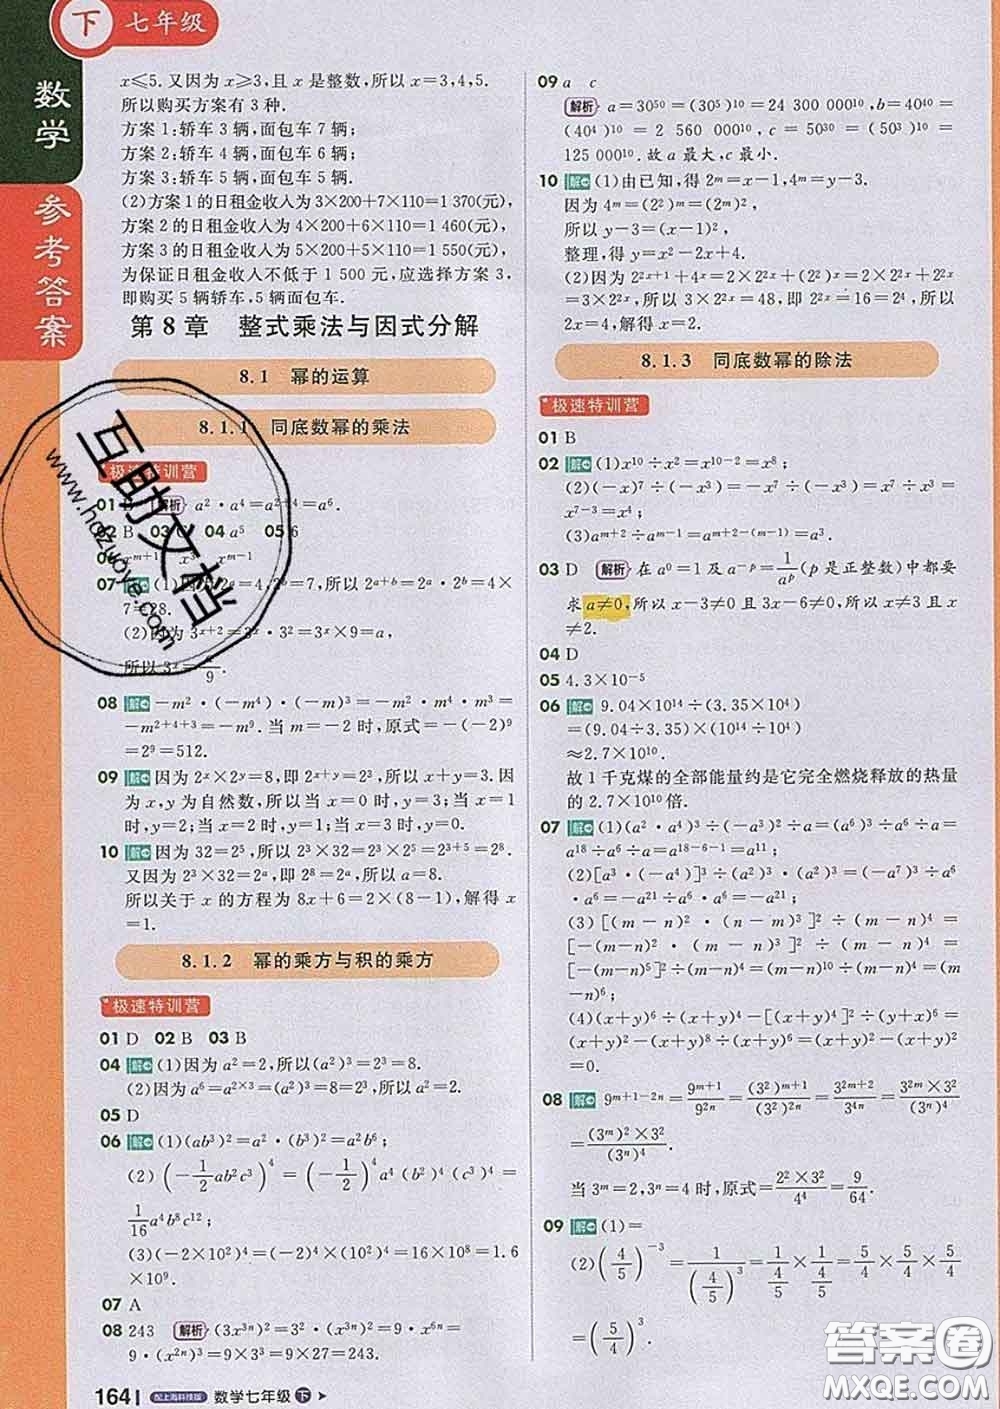 下 七年级
数学
参考答案
x≤5. 又因为 x≥3, 且 x 是整数, 所以 x=3,4,5.
所以购买方案有 3 种.
方案 1:轿车 3 辆,面包车 7 辆;
方案 2:轿车 4 辆,面包车 6 辆;
方案 3:轿车 5 辆,面包车 5 辆.
(2)方案 1 的日租金收入为 3×200+7×110=1 370(元),
方案 2 的日租金收入为 4×200+6×110=1 460(元),
方案 3 的日租金收入为 5×200+5×110=1 550(元),
为保证日租金收入不低于 1 500 元,应选择方案 3,
即购买 5 辆轿车,5 辆面包车.
第 8 章 整式乘法与因式分解
8.1 幂的运算
8.1.1 同底数幂的乘法
极速特训营
01 B 解析 a²·a⁴=a²⁺⁴=a⁶.
02 B 03 C 04 a⁵ 05 6
06 xᵐ⁺¹ x³ xᵐ⁻¹
07 解 (1)因为2ᵃ=4,2ᵇ=7,所以 2ᵃ⁺ᵇ=2ᵃ·2ᵇ=4×
7=28.
(2)因为 3ˣ⁺²=3ˣ·3²=3ˣ×9=a,
所以 3ˣ=a/9.
08 解 −m²·(−m⁴)·(−m)³=−m²·m⁴·m³=
−m²⁺⁴⁺³=−m⁹. 当 m=−2 时,原式=−(−2)⁹
=2⁹=512.
09 解 因为 2ˣ×2ʸ=8,即 2ˣ⁺ʸ=2³,所以 x+y=3. 因
为 x,y 为自然数,所以当 x=0 时,y=3;当 x=1
时,y=2;当 x=2 时,y=1;当 x=3 时,y=0.
10 解 因为 32=2⁵,所以 2³×32=2³×2⁵=2³⁺⁵=2⁸.
又因为 2³×32=2ᵃ,即 2⁸=2ᵃ,所以 a=8.
所以关于 x 的方程为 8x+6=2×(8−1),解得 x
=1.
8.1.2 幂的乘方与积的乘方
极速特训营
01 D 02 B 03 B
04 解 (1)因为 a²=2,所以(a²)³=2³=8.
(2)因为 a⁶=a²ˣ³=(a²)³=8,所以 a²=2.
05 D
06 解 (1)(ab³)²=a²·(b³)²=a²b⁶;
(2)(−1/2 ab²c³)⁴=(−1/2)⁴a⁴(b²)⁴(c³)⁴=
1/16 a⁴b⁸c¹²;
(3)(−2×10²)²×(4×10⁴)=16×10⁸=1.6
×10⁹.
07 A
08 243 解析 (3x³ⁿ)²=3²·(x³ⁿ)²=9·x⁶ⁿ=
9·(x²ⁿ)³=9×3³=9×27=243.
164 配上海科技版 数学七年级 下
09 a c
解析 a=30⁵⁰=(30⁵)¹⁰=24 300 000¹⁰,b=40⁴⁰=
(40⁴)¹⁰=2 560 000¹⁰,c=50³⁰=(50³)¹⁰=
125 000¹⁰. 故 a 最大,c 最小.
10 解 (1)由已知,得 2ᵐ=x−1,4ᵐ=y−3.
因为 4ᵐ=(2²)ᵐ=(2ᵐ)²,
所以 y−3=(x−1)²,
整理,得 y=x²−2x+4.
(2)因为 2²ˣ⁺¹+4ˣ=2×2²ˣ+(2²)ˣ=2×2²ˣ+2²ˣ
=3×2²ˣ,所以 3×2²ˣ=48,即 2²ˣ=16=2⁴,所以
2x=4,解得 x=2.
8.1.3 同底数幂的除法
极速特训营
01 B
02 解 (1)x¹⁰÷x²=x¹⁰⁻²=x⁸;
(2)(−x)⁷÷(−x³)=(−x⁷)÷(−x³)=x⁷÷x³=
x⁷⁻³=x⁴;
(3)aᵐ⁺²÷aᵐ⁻¹=aᵐ⁺²⁻⁽ᵐ⁻¹⁾=a³.
03 D 解析 在 a⁰=1 及 a⁻ᵖ=1/aᵖ(p 是正整数)中都要
求 a≠0,所以 x−3≠0 且 3x−6≠0,所以 x≠3 且 x
≠2.
04 D
05 4.3×10⁻⁵
06 解 9.04×10¹⁴÷(3.35×10⁴)
=(9.04÷3.35)×(10¹⁴÷10⁴)
≈2.7×10¹⁰.
故 1 千克煤的全部能量约是它完全燃烧释放的热量
的 2.7×10¹⁰倍.
07 解 (1)(a²·a⁴)³÷(−a³)²÷a=(a⁶)³÷a⁶÷a=
a¹⁸÷a⁶÷a=a¹⁸⁻⁶⁻¹=a¹¹;
(2)[a³·(−a)⁴]³÷(a²)³·(−a)³=(a⁷)³÷a⁶
·a⁶=−a²¹÷a⁶·a⁶=−a²¹;
(3)[(m−n)²·(n−m)³]²÷(m−n)⁴=
[−(m−n)²·(m−n)³]²÷(m−n)⁴=
[−(m−n)⁵]²÷(m−n)⁴=(m−n)¹⁰÷
(m−n)⁴=(m−n)⁶;
(4)(x+y)⁶÷(x+y)⁴−[(x+y)⁴]²÷(x+y)⁶=
(x+y)²−(x+y)⁸÷(x+y)⁶=(x+y)²−(x+y)²
=0.
08 解 9ᵐ⁺¹⁻²ⁿ=9ᵐ⁺¹/9²ⁿ=(3²)ᵐ⁺¹/(3²)²ⁿ=3²ᵐ⁺²/3⁴ⁿ=3²ᵐ×3²/(3ⁿ)⁴
=(3ᵐ)²×3²/(3ⁿ)⁴.
当 3ᵐ=2,3ⁿ=4 时,原式=2²×3²/4⁴=9/64.
09 解 (1)=
(2)(4/5)⁻³=1/(4/5)³=1/(4/5)×1/(4/5)×1/(4/5)=5/4×5/4×5/4
=(5/4)³.
互助文档
www.hdzuoye.com
答案圈
MXQE.COM